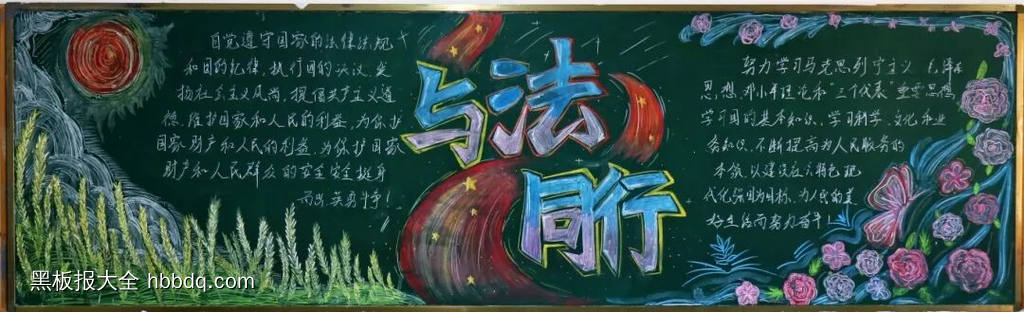 自觉遵守国家的法律法规
和团的纪律,执行团的决议,发
扬社会主义风尚,提倡共产主义道
德,维护国家和人民的利益,为保护
国家财产和人民的利益,为保护国家
财产和人民群众的安全挺身
而出,英勇斗争!
与法
同行
努力学习马克思列宁主义 毛泽东
思想,邓小平理论和“三个代表”重要思想,
学习团的基本知识,学习科学、文化和业
务知识,不断提高为人民服务的
本领,以建设社会特色现
代化强国为目标,为人民的美
好生活而努力奋斗!
黑板报大全 hbbdq.com